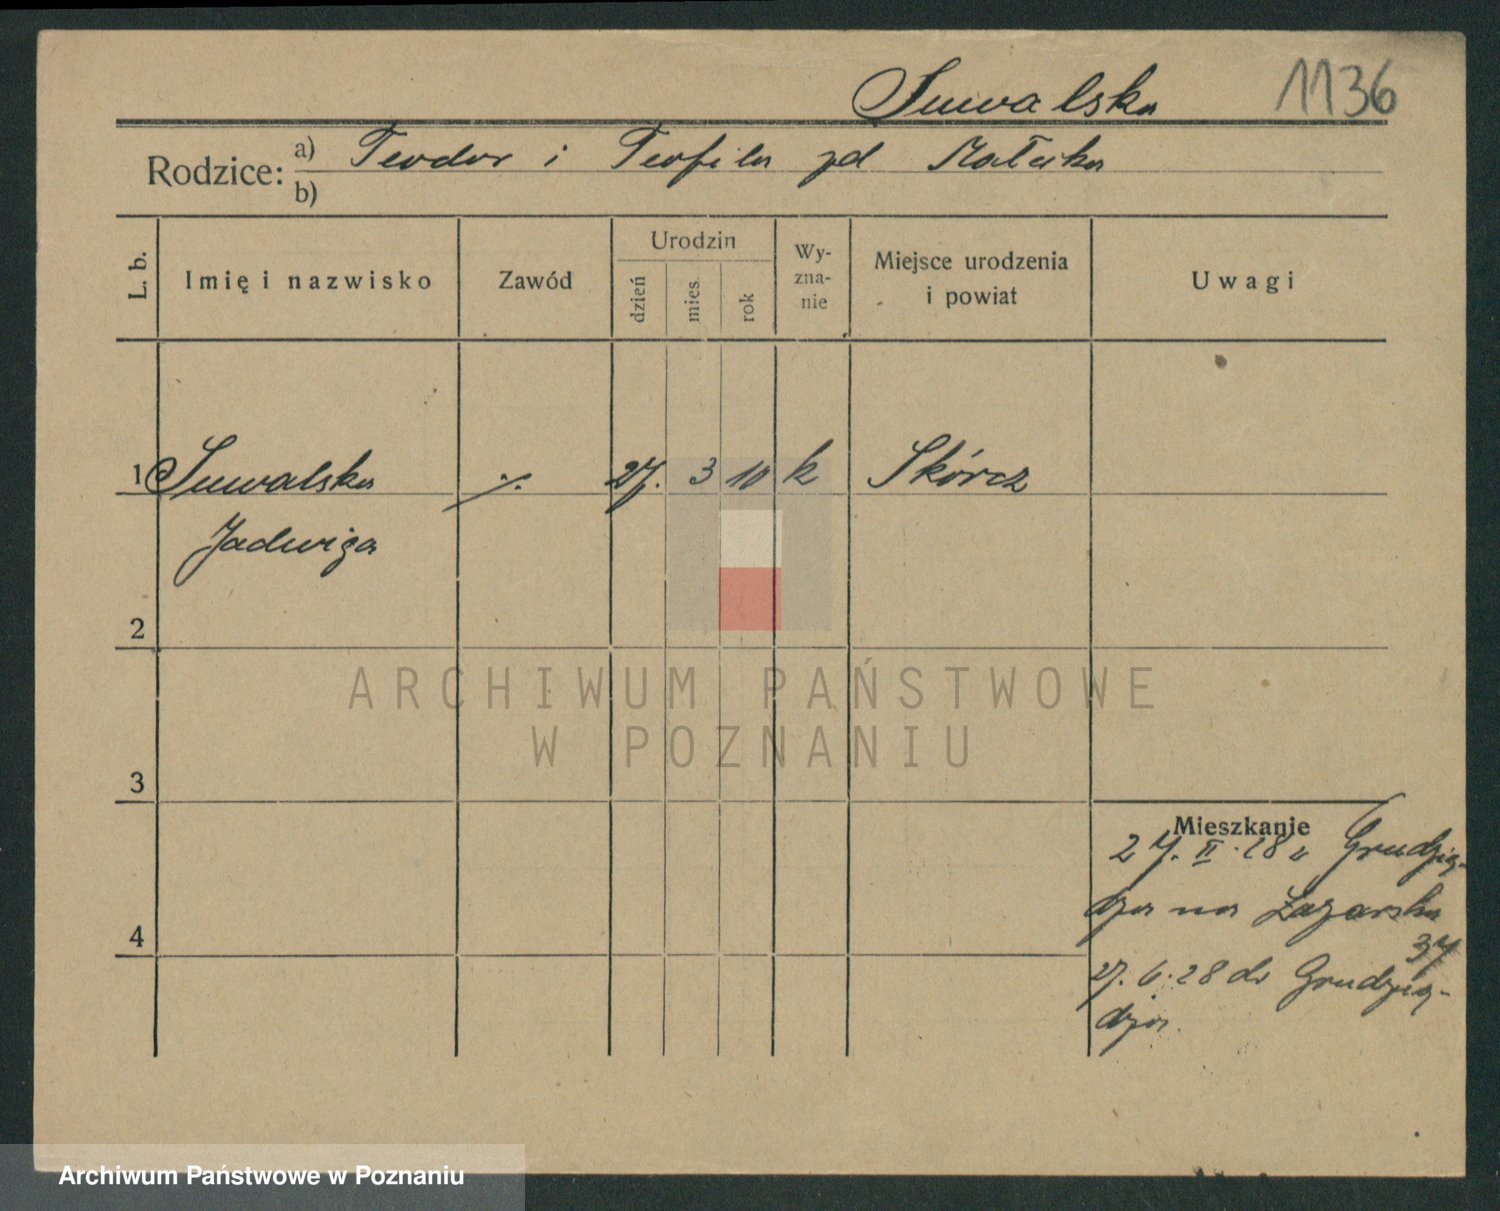 Suwalska 1136
Rodzice: a) Teodor i Teofila zd
b)
L. b. Imię i nazwisko Zawód Urodzin dzień mies. rok Wy-zna-nie Miejsce urodzenia i powiat Uwagi
1 Suwalska ·/. 27. 3 10 k Skórcz
Jadwiga
2
ARCHIWUM PAŃSTWOWE
W POZNANIU
3
Mieszkanie
27. II. 28 z Grudzią-
dza na Łazarska
37
4
27. 6. 28 do Grudzią-
dza.
Archiwum Państwowe w Poznaniu